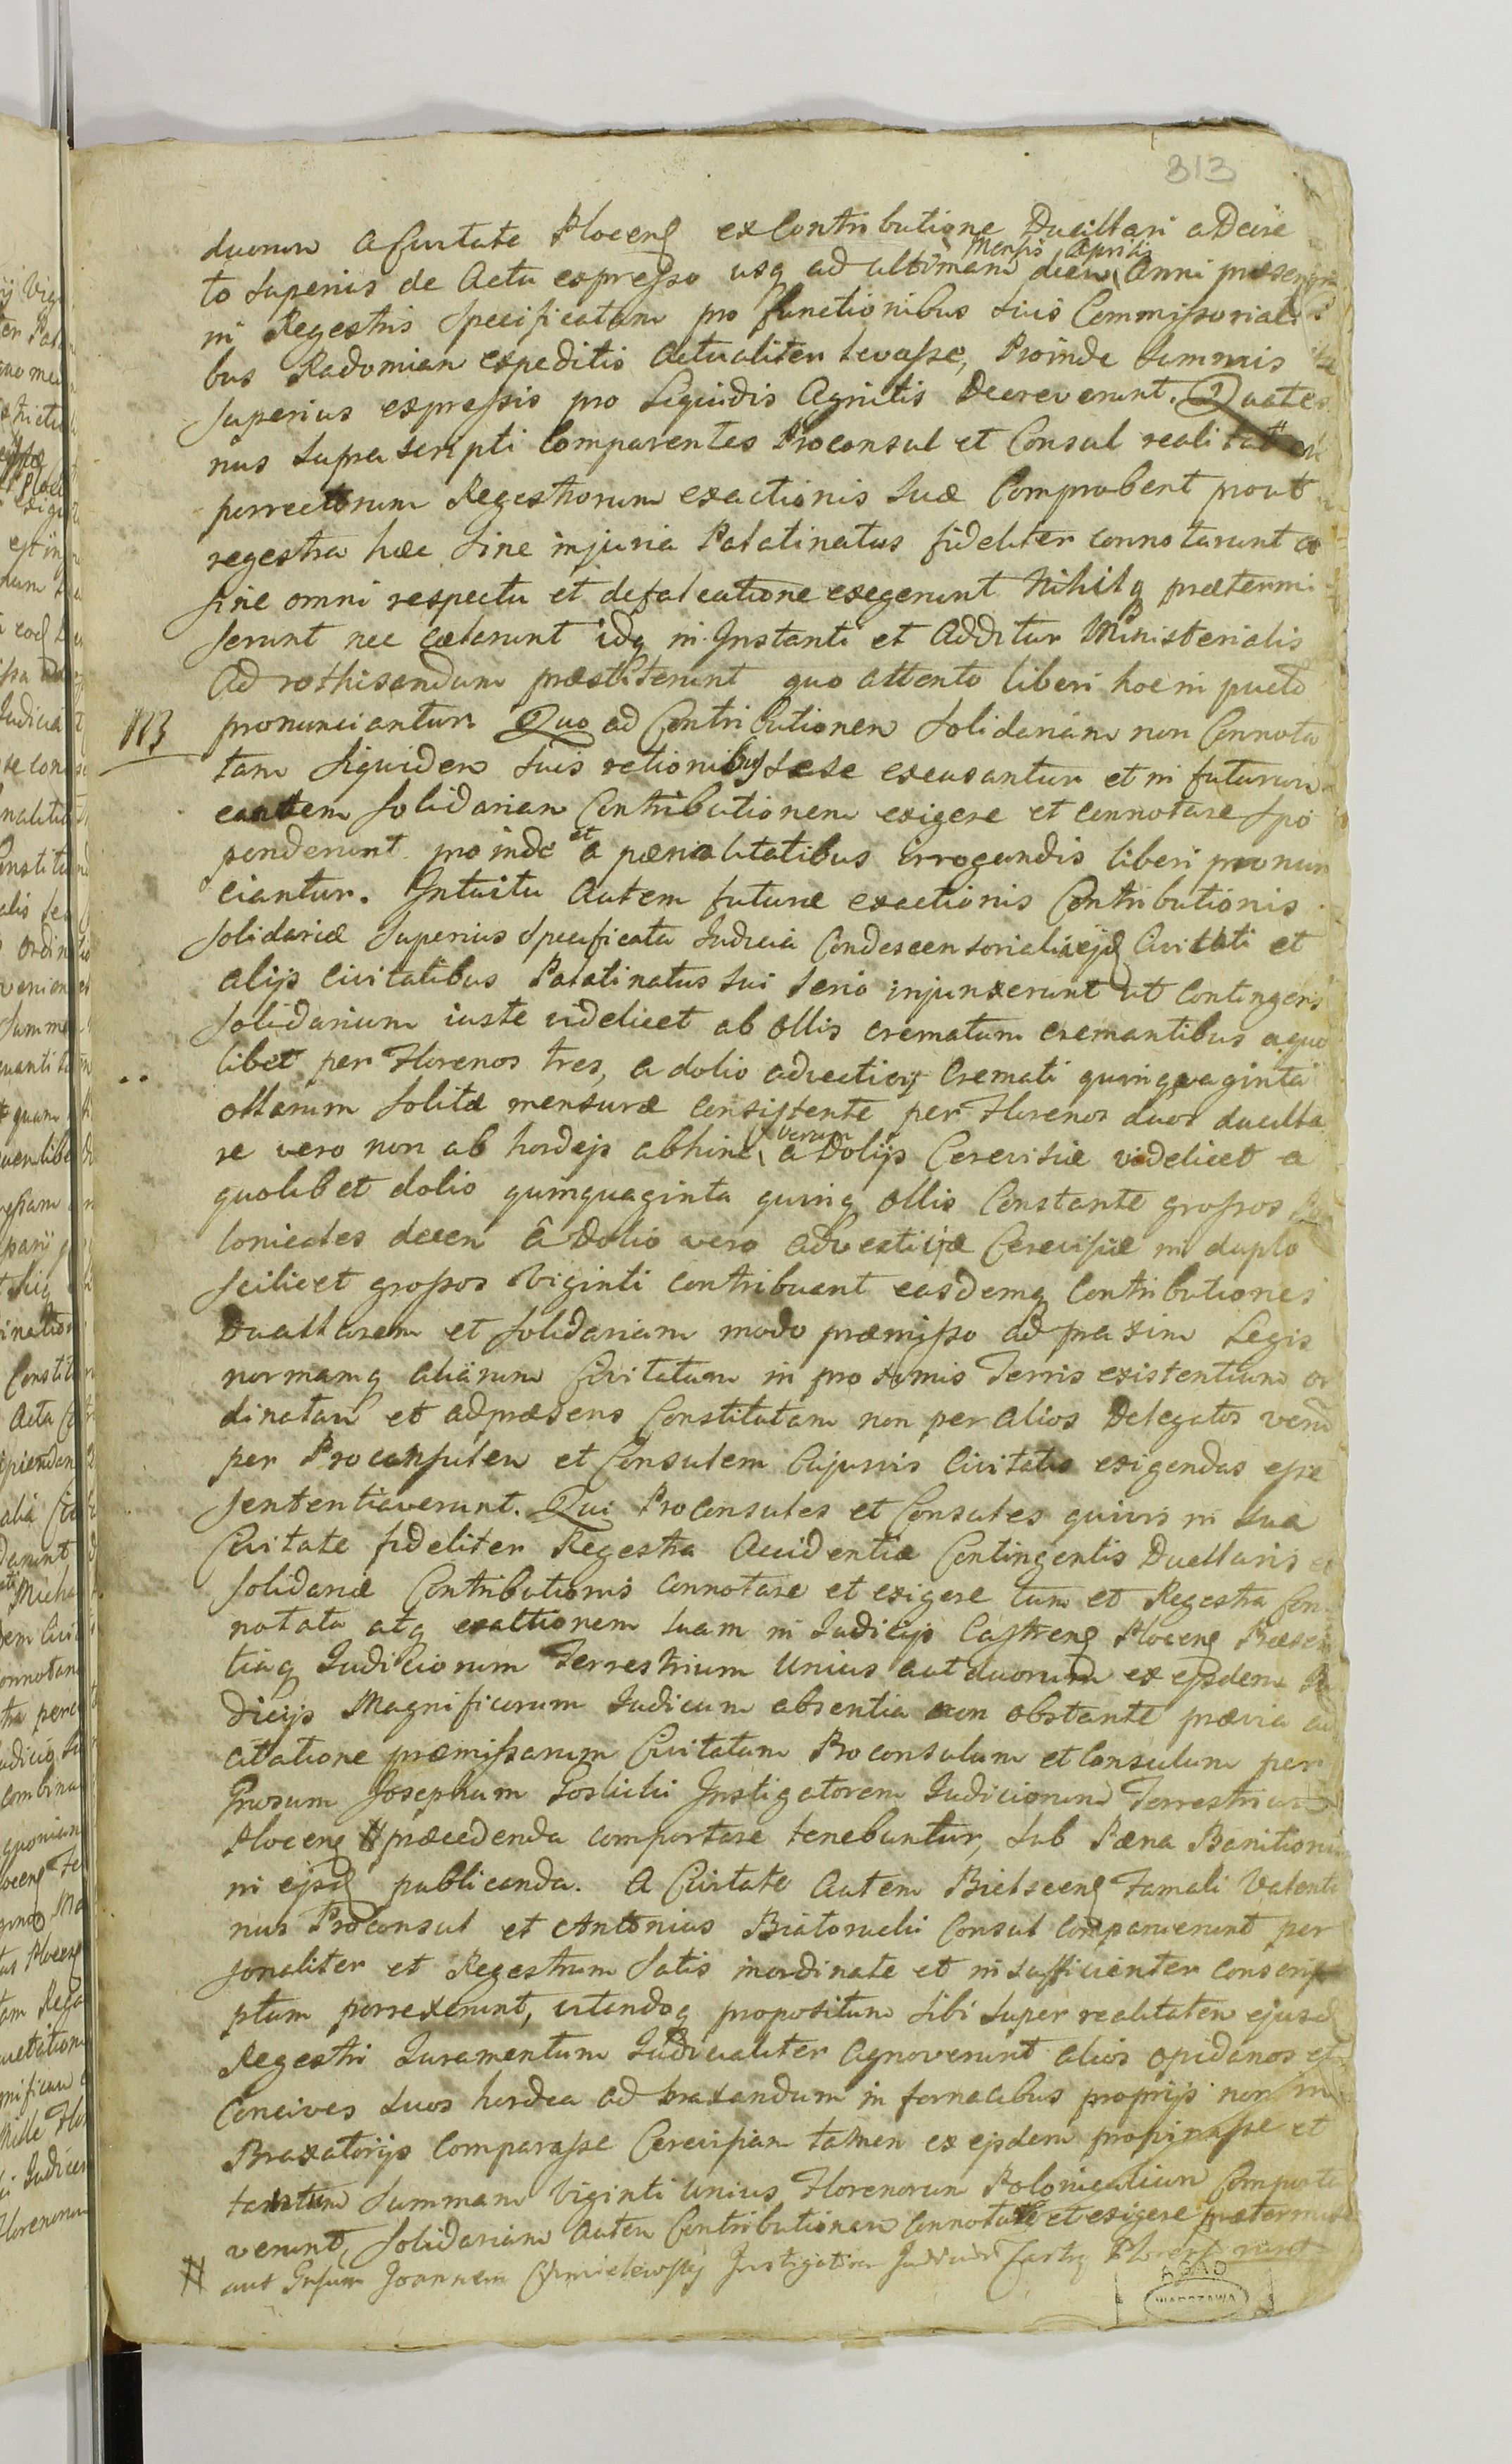 313
duorum a Civitate Plocens ex Contributione Ducillari a Decre
to superius de Actu expresso usq ad ultimam diem Mensis Aprilis Anni præsentis
in Regestris Specificatam pro functionibus suis Commissoriali
bus Radomiam expeditis actualiter levasse, Proinde summis
superius expressis pro Liquidis Agnitis Decreverunt. Quate
nus supra scripti Comparentes Proconsul et Consul realitatem
porrectorum Regestrorum exactionis suæ Comprobent prout
regestra hæc sine injuria Palatinatus fideliter connotarunt et
sine omni respectu et defalcatione exegerunt Nihilq prætermi
serunt nec cælarunt idq in Instanti et Additur Ministerialis
ad rothisandum præstiterunt quo attento liberi hoc in puncto
pronunciantur. Quo ad Contributionem solidariam non Connota
tam siquidem suis rationibus sese excusantur et in futurum
eandem solidariam Contributionem exigere et connotare spo
ponderunt proinde et a pænalitatibus irrogandis liberi pronun
NB
ciantur. Intuitu autem futuræ exactionis Contributionis
solidariæ superius specificata Judicia Condescensorialia ejsd Civitati et
alijs Civitatibus Palatinatus sui serio injunxerunt ut contingens
solidarium iuste videlicet ab ollis crematum cremantibus a quo
libet per Florenos tres, a dolio advectitij Cremati quinquaginta
ollarum solitæ mensuræ consistente per Florenos duos ducilla
re vero non ab hordejs abhinc verum a Dolijs Cerevisiæ videlicet a
quolibet dolio quinquaginta quinq ollis Constante grossos Po
lonicales decem a Dolio vero advectitiæ Cerevisiæ in duplo
scilicet grossos Viginti contribuant easdemq Contributiones
Ducillarem et solidariam modo præmisso ad praxim Legis
normamq aliarum Civitatum in proximis Terris existentium or
dinatam et ad præsens Constitutam non per alios Delegatos verum
per Proconsulem et Consulem Cujusvis Civitatis exigendas esse
sententiaverunt. Qui Proconsules et Consules quivis in sua
Civitate fideliter Regestra Accidentiæ Contingentis Ducillaris et
solidariæ Contributionis connotare et exigere tum et Regestra Con
notata atq exactionem suam in Judicijs Castrens Plocens Præsen
tiaq Judiciorum Terrestrium Unius aut duorum ex ejsdem Ju
dicijs Magnificorum Judicum absentia non obstante prævia ad
citatione præmissarum Civitatum Proconsulum et Consulum per
Gnosum Josephum Goslicki Instigatorem Judiciorum Terrestrium
Plocens # præcedenda comportare tenebuntur, sub Pæna Banitionis
in ejsd publicanda. A Civitate autem Bielscens Famati Valenti
nus Proconsul et Antonius Białorucki Consul Comparuerunt per
sonaliter et Regestrum satis inordinate et insufficienter conscrip
ptum porrexerunt, vitandoq propositum sibi super realitatem ejusd
Regestri Juramentum Judicialiter agnoverunt alios opidanos et
Concives suos hordea ad braxandum in fornacibus proprijs non in
Braxatorijs Comparasse Cerevisiam tamen ex ejsdem propinasse et
tantum summam Viginti Unius Florenorum Polonicalium Comporta
verunt, solidariam autem Contributionem connotare et exigere prætermise
runt
# aut Gnsum Joannem Chmielewski Instigatorem Judicior Castr Plocens
AGAD
WARSZAWA